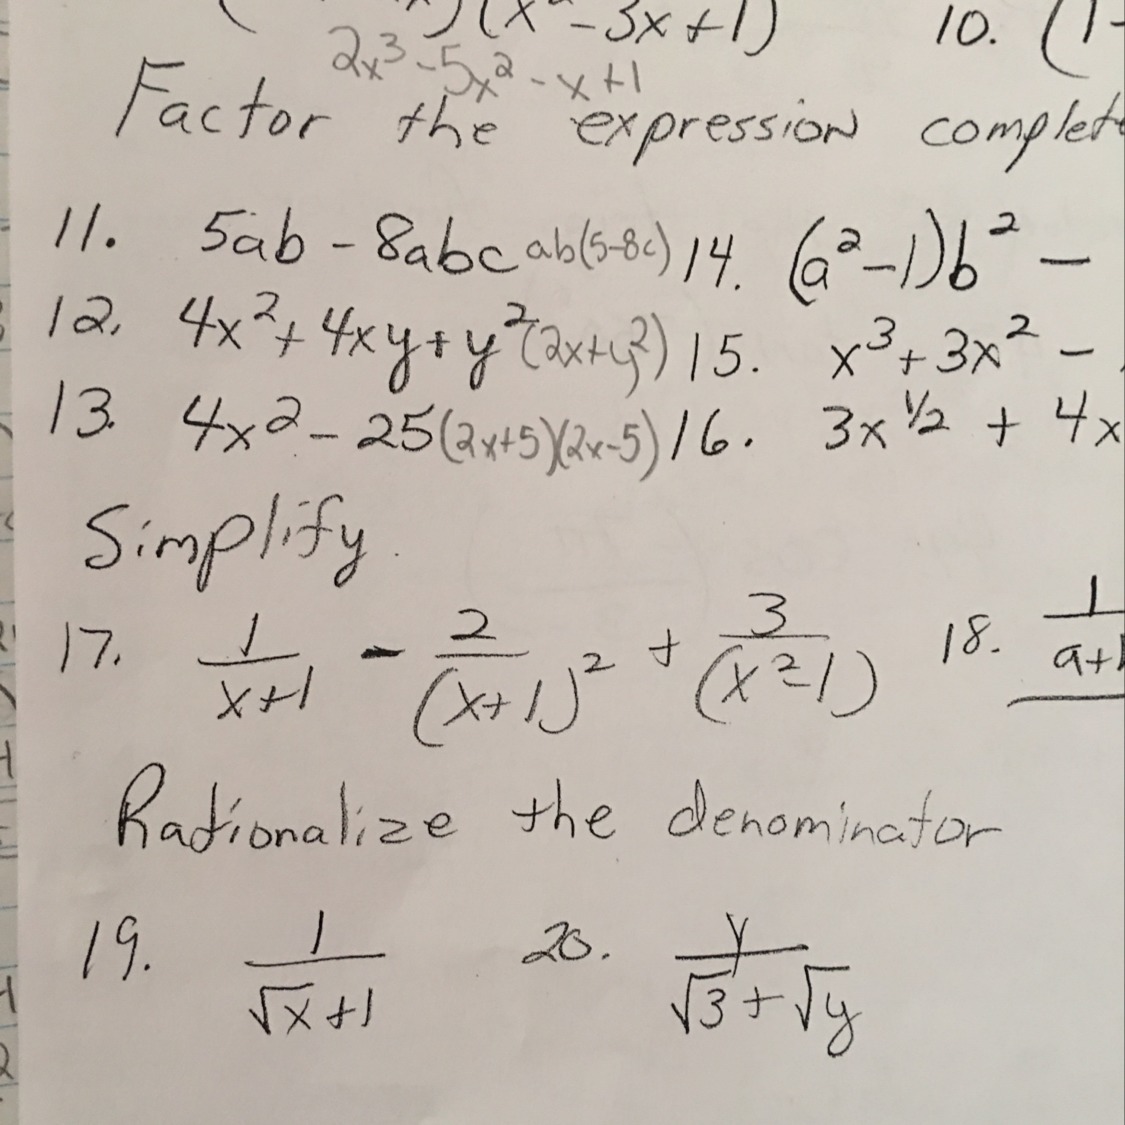 )(x² - 3x + 1) 10. (1-
2x³ - 5x² - x + 1
Factor the expression complet
11. 5ab - 8abc ab(5-8c) 14. (a² - 1)b² -
12. 4x² + 4xy + y² (2x+y²) 15. x³ + 3x² -
13. 4x² - 25 (2x+5)(2x-5) 16. 3x^1/2 + 4x
Simplify.
17. 1/(x+1) - 2/(x+1)² + 3/(x²-1) 18. 1/(a+
Rationalize the denominator
19. 1/(√x+1) 20. y/(√3+√y)